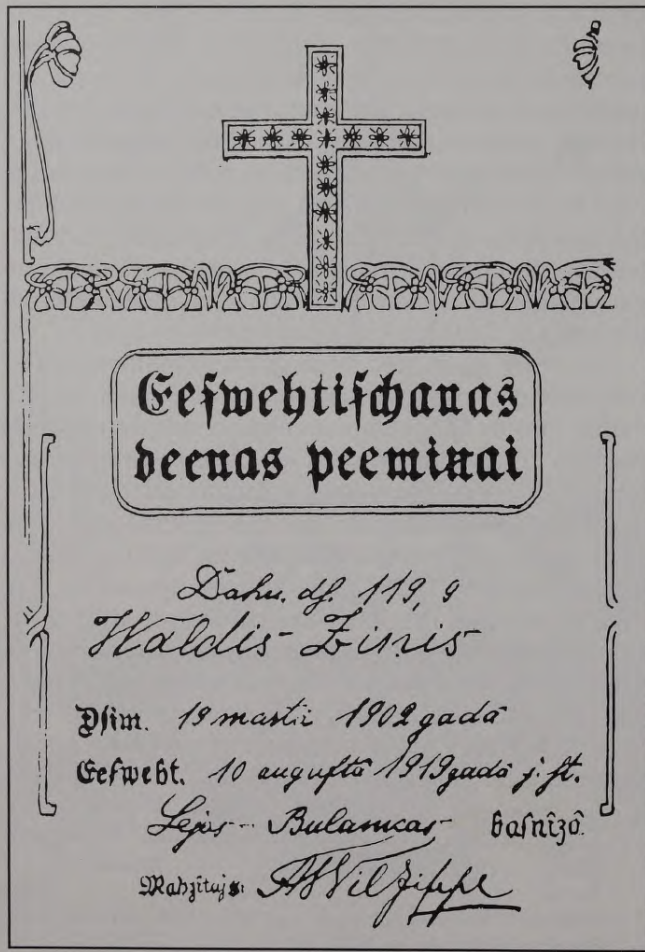 Eeſwehtiſchanas
deenas peeminai
Dahw. dſ. 119, 9
Waldis Zinis
Dſim. 19 martii 1902 gadâ
Eeſweht. 10 auguſtâ 1919 gadâ j. ſt.
Lejas- Bulanas baſnîzâ.
Mahzitajs: